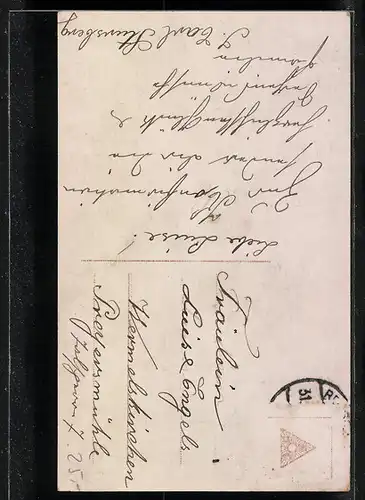 Liebe Luise!
Zur Konfirmation
sendet dir die
herzlichsten Glück &
Segenswünsche
Familie
J. Carl Stursberg
Fräulein
Luise Engels
Wermelskirchen
Preyersmühle
31